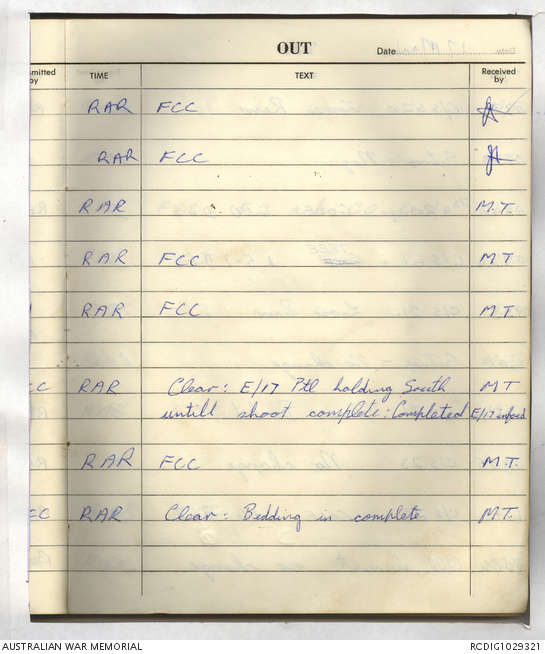 OUT
Date
mitted by TIME TEXT Received by
RAR FCC
RAR FCC
RAR M.T.
RAR FCC M.T
RAR FCC M.T.
CC RAR Clear: E/17 Ptl holding South M T
untill shoot complete: Completed E/17 infood
RAR FCC M.T.
CC RAR Clear: Bedding in complete M.T.
AUSTRALIAN WAR MEMORIAL RCDIG1029321